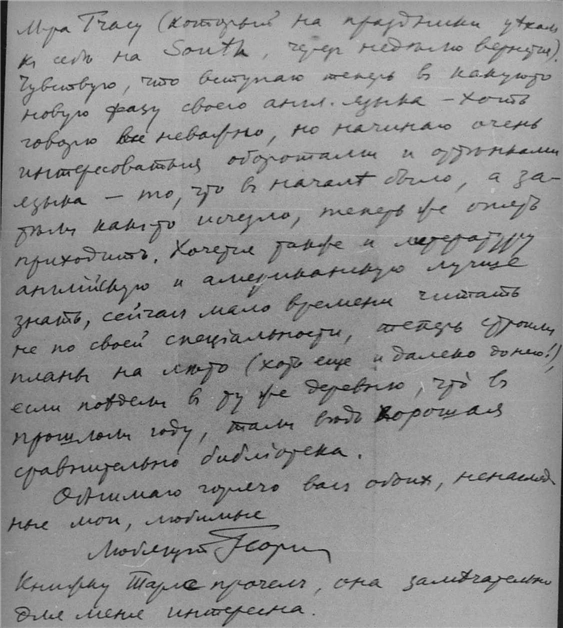 Мра Tracy (который на праздники уѣхалъ
къ себѣ на South, черезъ недѣлю вернется).
Чувствую, что вступаю теперь в какую-то
новую фазу своего англ. языка – хоть
говорю все неважно, но начинаю очень
интересоваться оборотами и оттѣнками
языка – то, что в началѣ было, а за-
тѣмъ какъ-то исчезло, теперь же опять
приходитъ. Хочется также и литературу
английскую и американскую лучше
знать, сейчас мало времени читать
не по своей спецiальности, теперь строимъ
планы на лѣто (хоть еще и далеко до него!),
если поѣдемъ в ту же деревню, что в
прошломъ году, тамъ вѣдь хорошая
сравнительно библiотека.
Обнимаю горячо васъ обоих, ненагляд-
ные мои, любимые
Любящiй
Книжку Тарле прочелъ, она замѣчательно
для меня интересна.